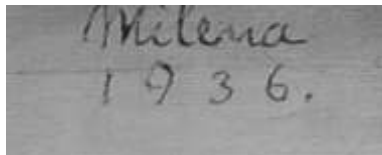 Milena
1936.